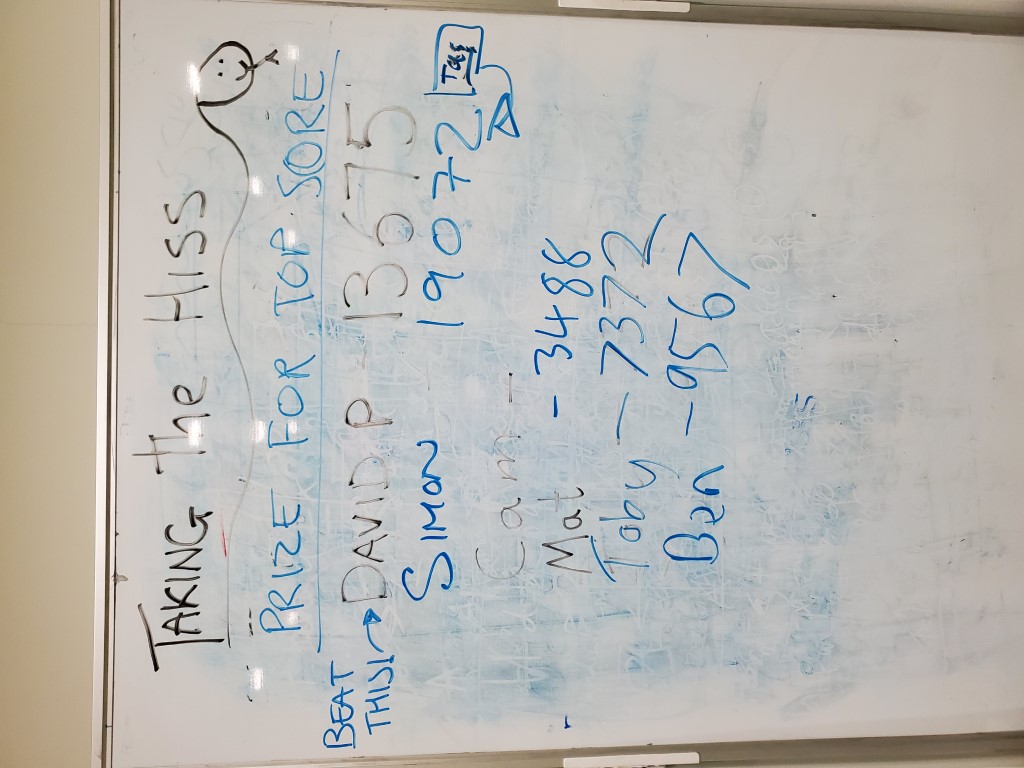 TAKING the HISS
PRIZE FOR TOP SCORE
BEAT THIS!
DAVID P - 13675
SIMON 19072
Cam -
Mat - 3488
Toby - 7372
Ben - 9567